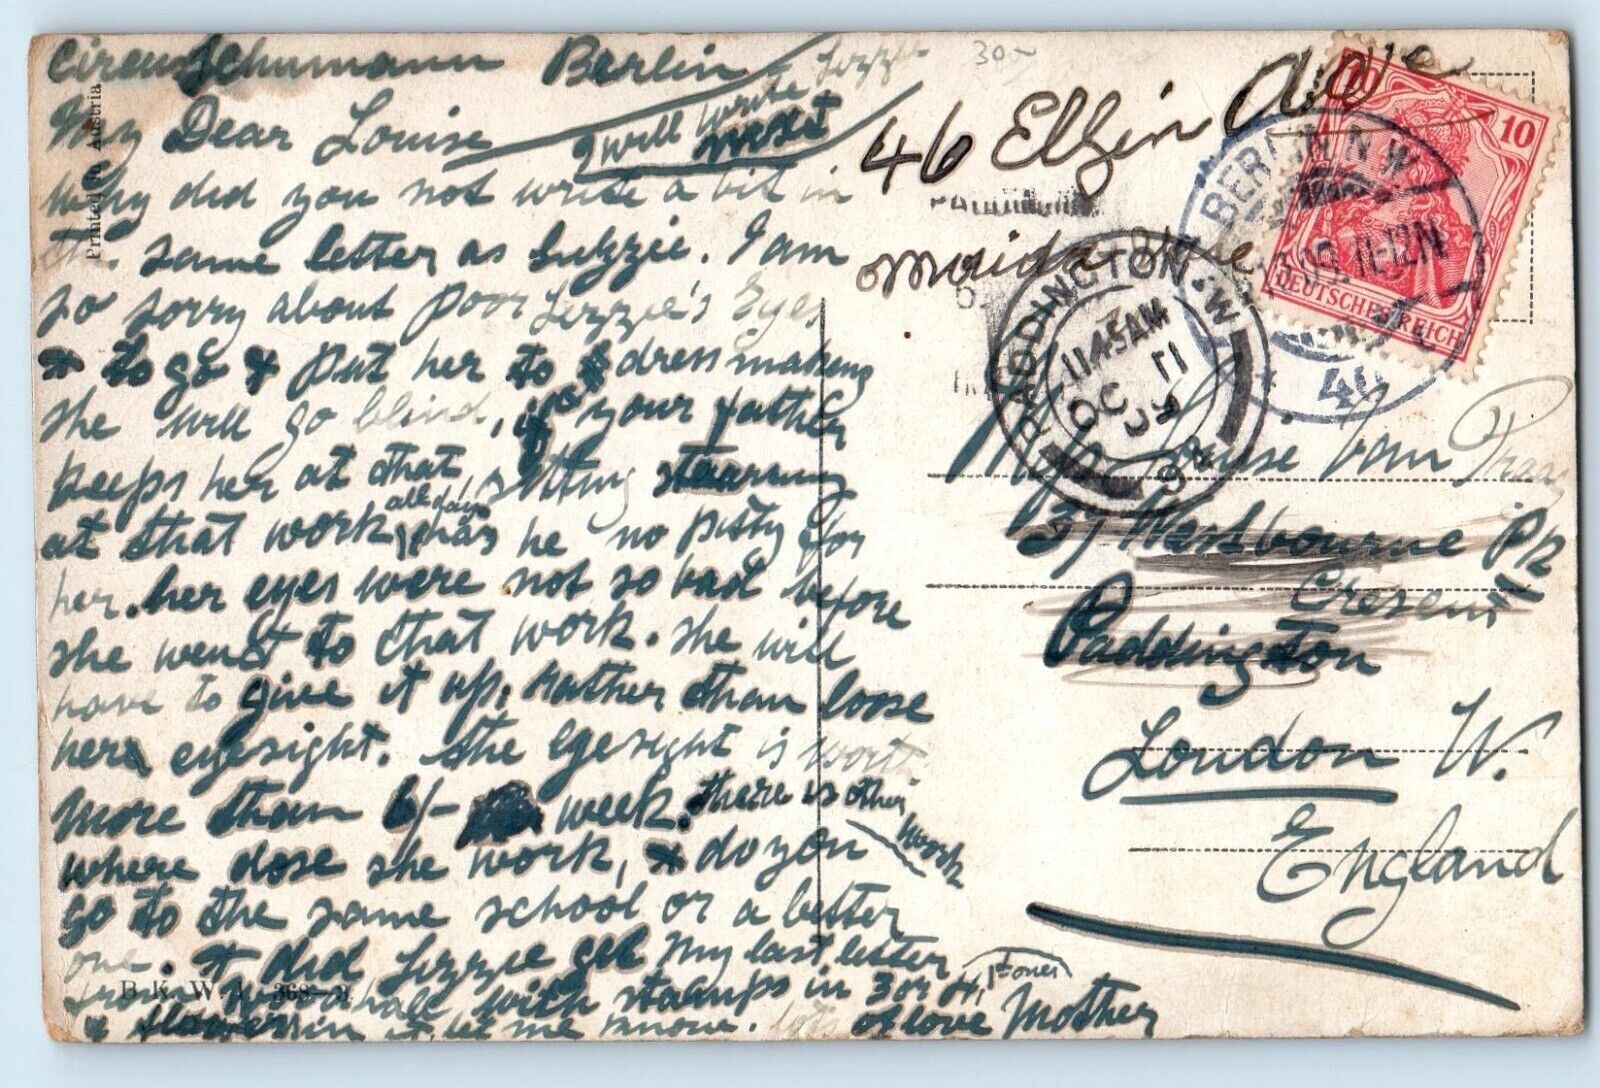 Circus Schumann Berlin
My Dear Louise
I will write Lizzie
next
Why did you not write a bit in
the same letter as Lizzie. I am
so sorry about poor Lizzie's Eyes
& to go & put her to dressmaking
she will go blind, if your father
keeps her at that, sitting staaring
at that work all day, has he no pitty for
her. her eyes were not so bad before
she went to that work. she will
have to give it up. Rather than loose
her eyesight. the Eyesight is worth
more than 6/- week. there is other work
where dose she work, & do you
go to the same school or a better
one. & did Lizzie get my last letter
from with stamps in 3 or 4, 1st ones
& flowers in it, let me know. lots of love Mother
Printed in Austria
B.K.W.I. 368-3
30-
46 Elgin Ave
Maida Vale
10 10
DEUTSCHES REICH
BERLIN N.W.
11-12N
40
PADDINGTON. W
11 45 AM
OC 11
09
98
Louise Van Praag
137 Westbourne
Cresent
Paddington
London W.
England